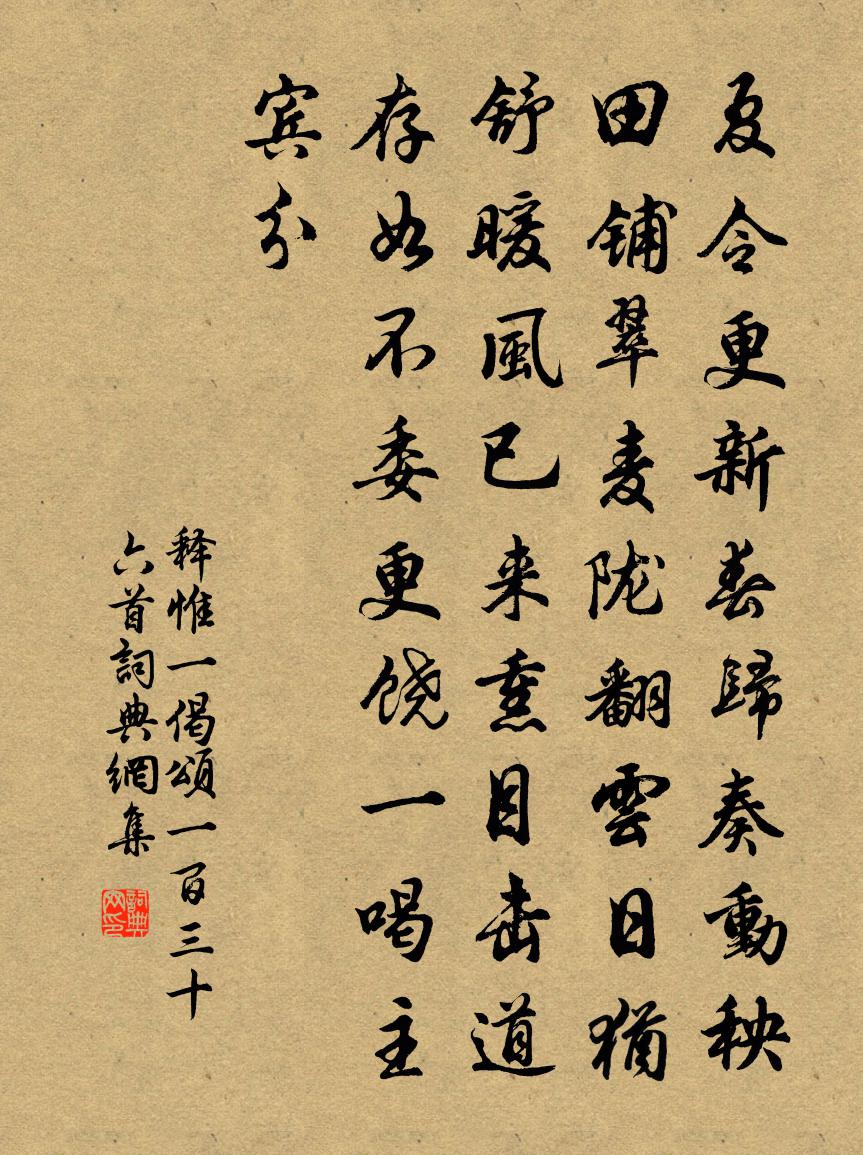 夏令更新春歸奏動秧
田铺翠麦陇翻雲日猶
舒暖風已来熏目击道
存如不委更饶一喝主
宾分
释惟一偈頌一百三十
六首詞典網集
詞典网印